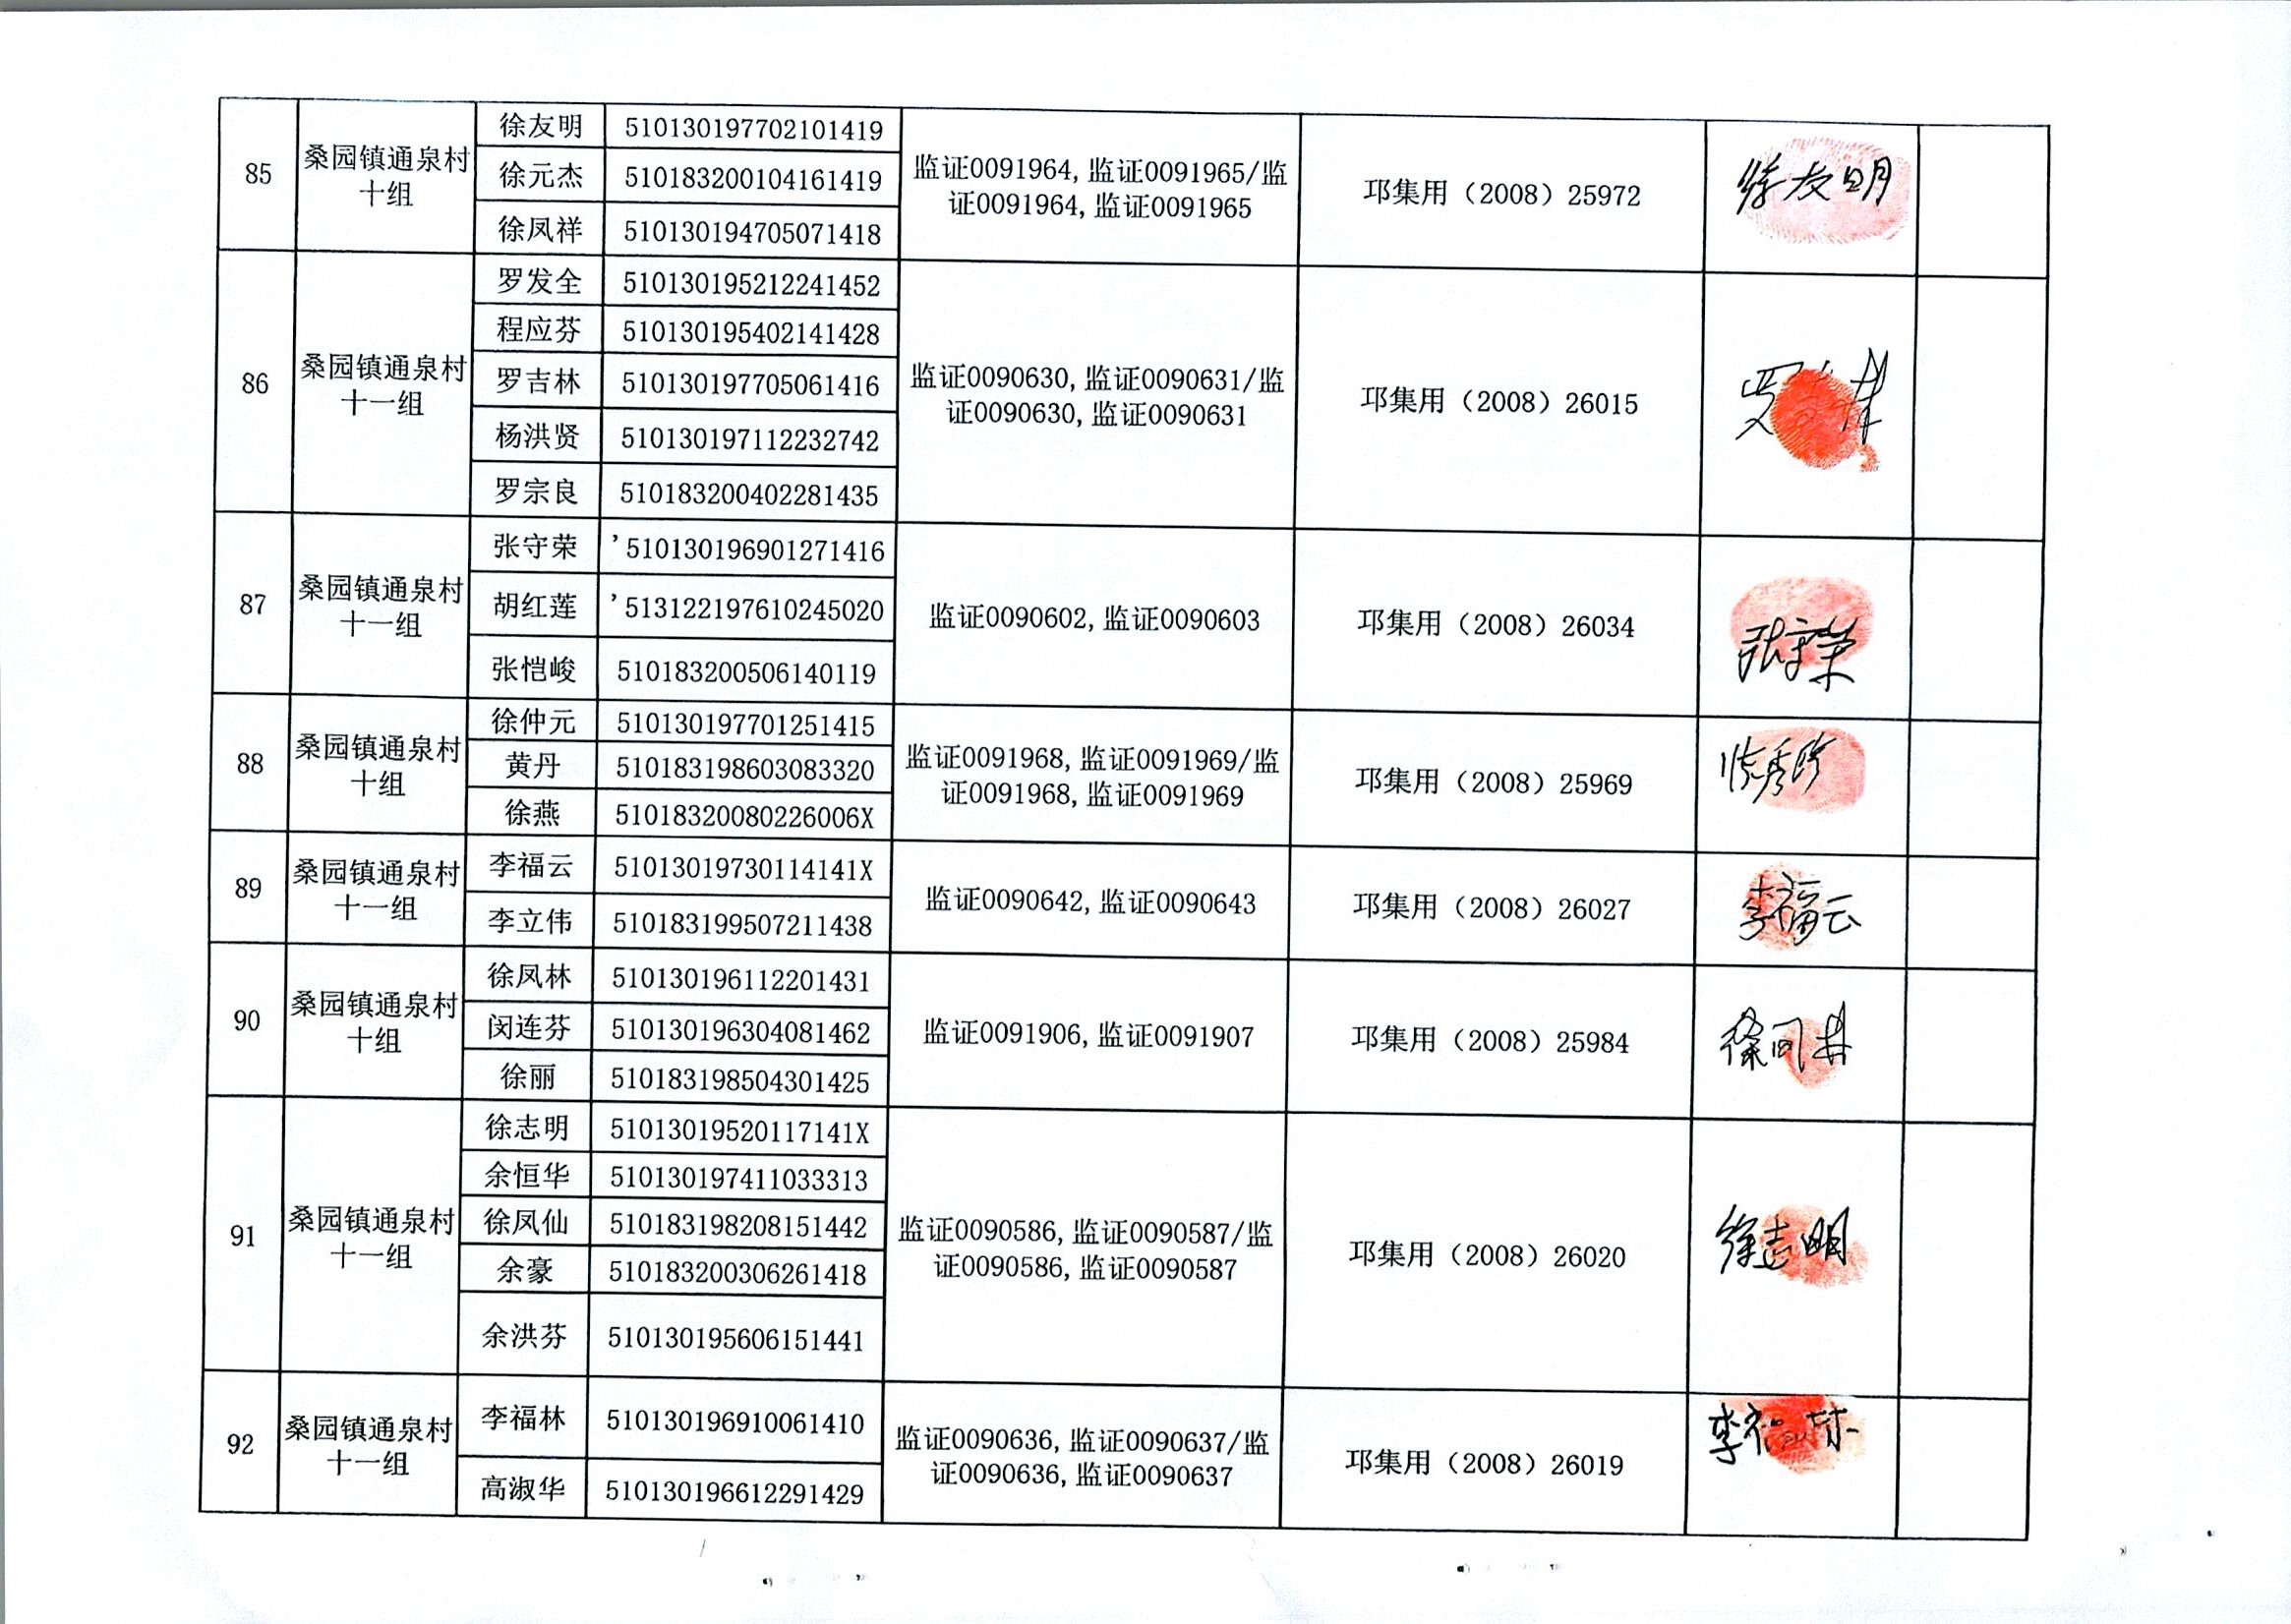 85
桑园镇通泉村
十组
徐友明 510130197702101419
徐元杰 510183200104161419
徐凤祥 510130194705071418
监证0091964, 监证0091965/监
证0091964, 监证0091965
邛集用（2008）25972
徐友明
86
桑园镇通泉村
十一组
罗发全 510130195212241452
程应芬 510130195402141428
罗吉林 510130197705061416
杨洪贤 510130197112232742
罗宗良 510183200402281435
监证0090630, 监证0090631/监
证0090630, 监证0090631
邛集用（2008）26015
87
桑园镇通泉村
十一组
张守荣 ’510130196901271416
胡红莲 ’513122197610245020
张恺峻 510183200506140119
监证0090602, 监证0090603
邛集用（2008）26034
张守荣
88
桑园镇通泉村
十组
徐仲元 510130197701251415
黄丹 510183198603083320
徐燕 51018320080226006X
监证0091968, 监证0091969/监
证0091968, 监证0091969
邛集用（2008）25969
89
桑园镇通泉村
十一组
李福云 51013019730114141X
李立伟 510183199507211438
监证0090642, 监证0090643
邛集用（2008）26027
李福云
90
桑园镇通泉村
十组
徐凤林 510130196112201431
闵连芬 510130196304081462
徐丽 510183198504301425
监证0091906, 监证0091907
邛集用（2008）25984
徐凤林
91
桑园镇通泉村
十一组
徐志明 51013019520117141X
余恒华 510130197411033313
徐凤仙 510183198208151442
余豪 510183200306261418
余洪芬 510130195606151441
监证0090586, 监证0090587/监
证0090586, 监证0090587
邛集用（2008）26020
徐志明
92
桑园镇通泉村
十一组
李福林 510130196910061410
高淑华 510130196612291429
监证0090636, 监证0090637/监
证0090636, 监证0090637
邛集用（2008）26019
李福林